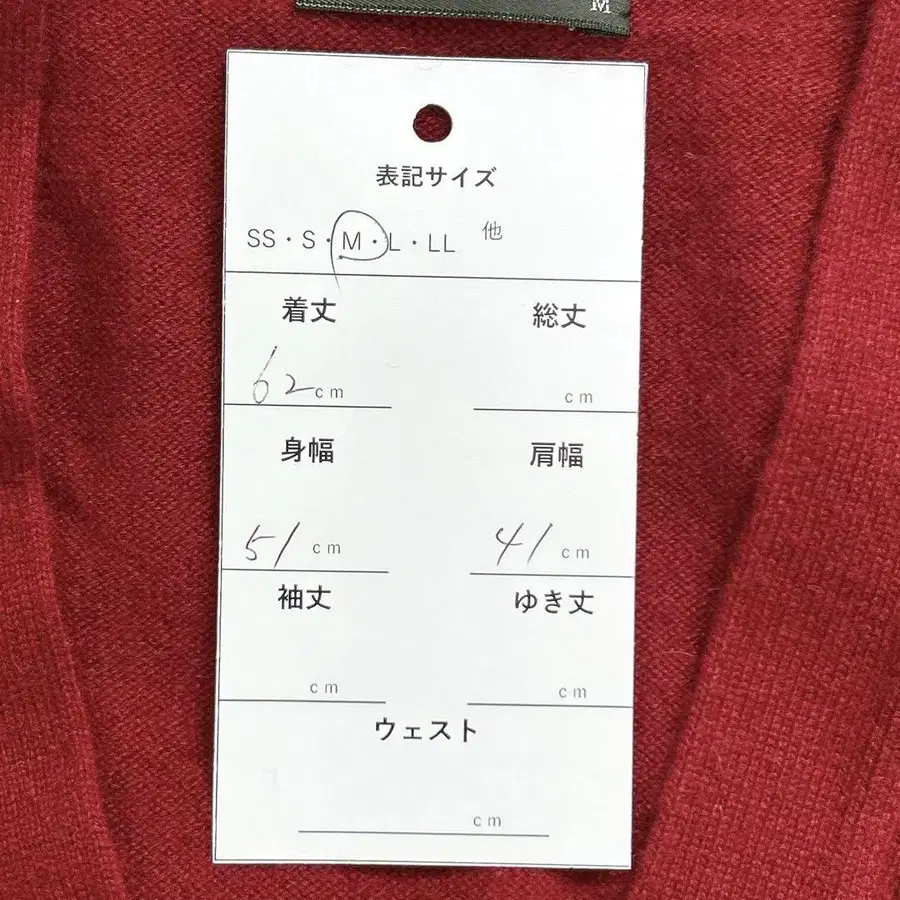 M
表記サイズ
SS・S・M・L・LL 他
着丈 総丈
62cm cm
身幅 肩幅
51 cm 41 cm
袖丈 ゆき丈
cm cm
ウェスト
cm